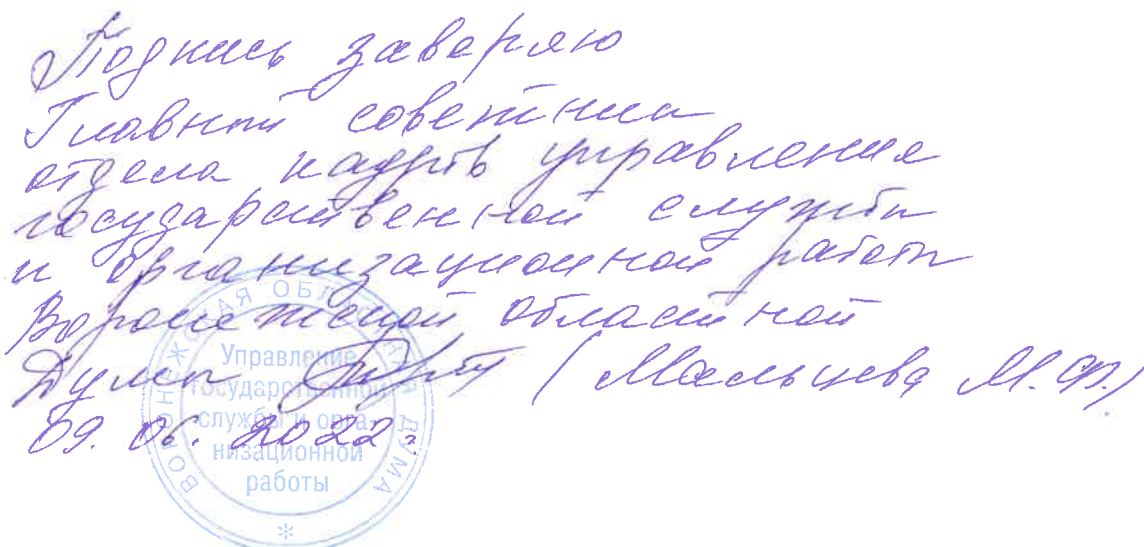 Подпись заверяю
Главный советник
отдела кадров управления
государственной службы
и организационной работы
Воронежской областной
Думы (Мальцева М.Ф.)
09.06.2022г.
ВОРОНЕЖСКАЯ ОБЛАСТНАЯ ДУМА
Управление
государственной
службы и орга-
низационной
работы